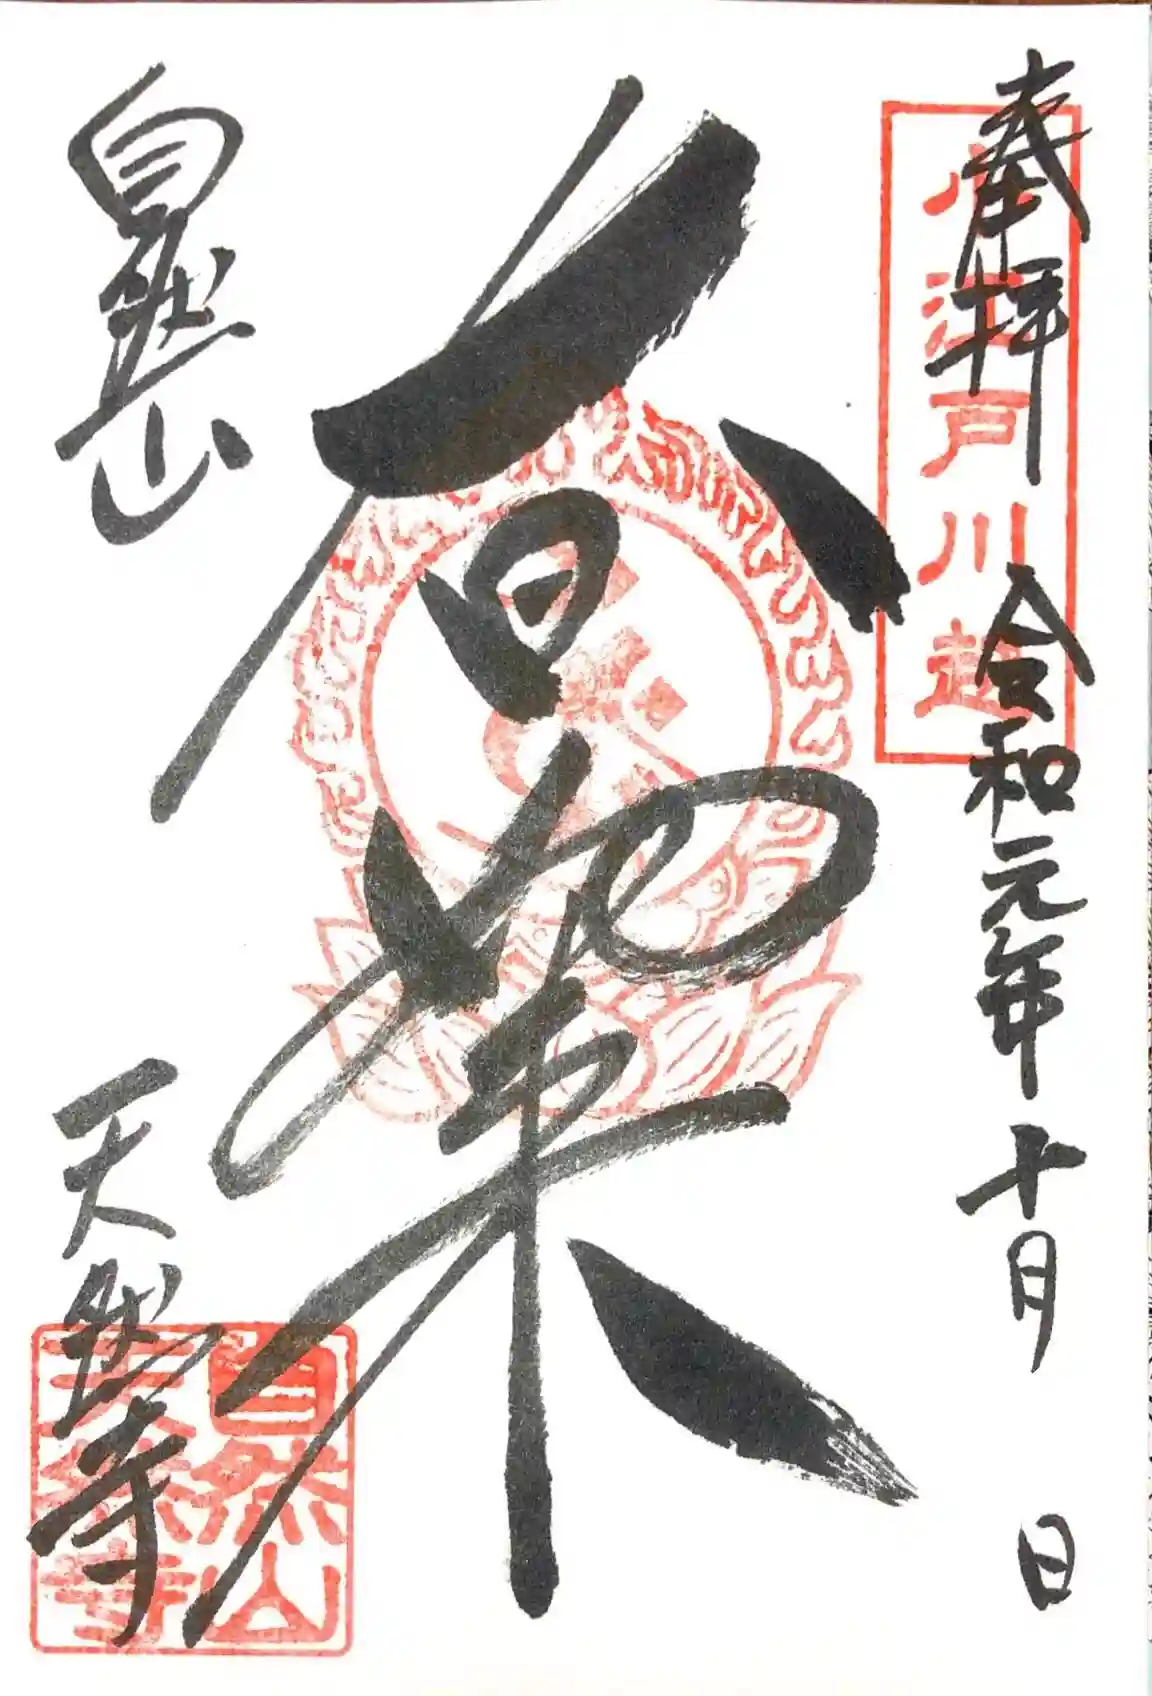 奉拝 令和元年十月 日
小江戸川越
大日如来
自然山 天然寺
自然山
天然寺